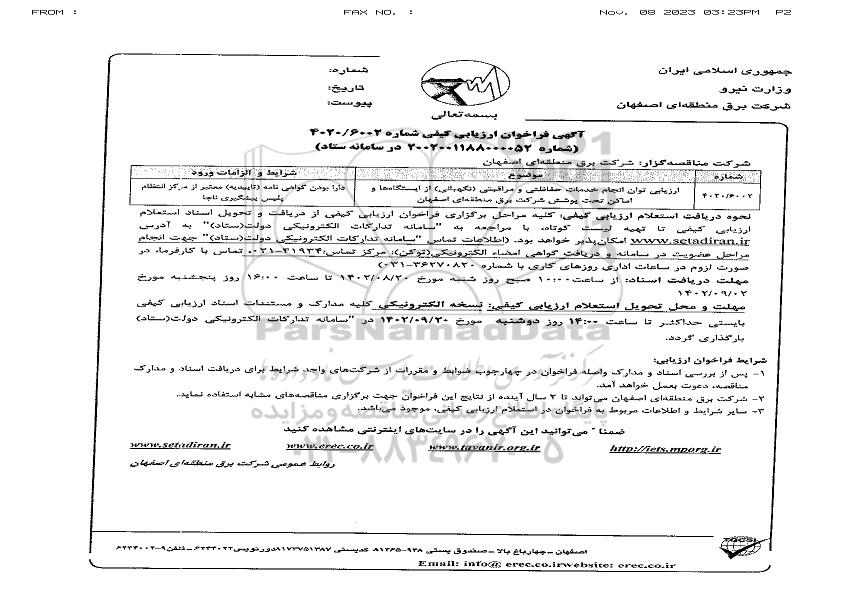 FROM :
FAX NO. :
Nov. 08 2023 03:23PM P2
جمهوری اسلامی ایران
وزارت نیرو
شرکت برق منطقه‌ای اصفهان
شماره:
تاریخ:
پیوست:
بسمه‌تعالی
آگهی فراخوان ارزیابی کیفی شماره ۴۰۲۰/۶۰۰۲
(شماره ۲۰۰۲۰۰۱۱۸۸۰۰۰۰۵۲ در سامانه ستاد)
شرکت مناقصه‌گزار: شرکت برق منطقه‌ای اصفهان
شماره موضوع شرایط و الزامات ورود
۴۰۲۰/۶۰۰۲ ارزیابی توان انجام خدمات حفاظتی و مراقبتی (نگهبانی) از ایستگاه‌ها و اماکن تحت پوشش شرکت برق منطقه‌ای اصفهان دارا بودن گواهی نامه (تاییدیه) معتبر از مرکز انتظام پلیس پیشگیری ناجا
نحوه دریافت استعلام ارزیابی کیفی: کلیه مراحل برگزاری فراخوان ارزیابی کیفی از دریافت و تحویل اسناد استعلام
ارزیابی کیفی تا تهیه لیست کوتاه، با مراجعه به "سامانه تدارکات الکترونیکی دولت(ستاد)" به آدرس
www.setadiran.ir امکان‌پذیر خواهد بود. (اطلاعات تماس "سامانه تدارکات الکترونیکی دولت(ستاد)" جهت انجام
مراحل عضویت در سامانه و دریافت گواهی امضاء الکترونیکی(توکن): مرکز تماس:۴۱۹۳۴-۰۲۱ تماس با کارفرما، در
صورت لزوم در ساعات اداری روزهای کاری با شماره ۳۶۲۷۰۸۲۰-۰۳۱)
مهلت دریافت اسناد: از ساعت ۱۰:۰۰ صبح روز شنبه مورخ ۱۴۰۲/۰۸/۲۰ تا ساعت ۱۶:۰۰ روز پنجشنبه مورخ
۱۴۰۲/۰۹/۰۲
مهلت و محل تحویل استعلام ارزیابی کیفی: نسخه الکترونیکی کلیه مدارک و مستندات اسناد ارزیابی کیفی
بایستی حداکثر تا ساعت ۱۴:۰۰ روز دوشنبه مورخ ۱۴۰۲/۰۹/۲۰ در "سامانه تدارکات الکترونیکی دولت(ستاد)
بارگذاری گردد.
شرایط فراخوان ارزیابی:
۱- پس از بررسی اسناد و مدارک واصله فراخوان در چهارچوب ضوابط و مقررات از شرکت‌های واجد شرایط برای دریافت اسناد و مدارک
مناقصه، دعوت بعمل خواهد آمد.
۲- شرکت برق منطقه‌ای اصفهان می‌تواند تا ۲ سال آینده از نتایج این فراخوان جهت برگزاری مناقصه‌های مشابه استفاده نماید.
۳- سایر شرایط و اطلاعات مربوط به فراخوان در استعلام ارزیابی کیفی، موجود می‌باشد.
ضمناً می‌توانید این آگهی را در سایت‌های اینترنتی مشاهده کنید
http://iets.mporg.ir www.tavanir.org.ir www.erec.co.ir www.setadiran.ir
روابط عمومی شرکت برق منطقه‌ای اصفهان
ParsNamadData
۰۲۱-۸۸۳۴۹۶۷۰-۵
اصفهان -چهارباغ بالا -صندوق پستی ۹۳۸-۸۱۶۴۵ کدپستی ۸۱۷۳۷۵۱۳۸۷
Email: info@ erec.co.irwebsite: erec.co.ir